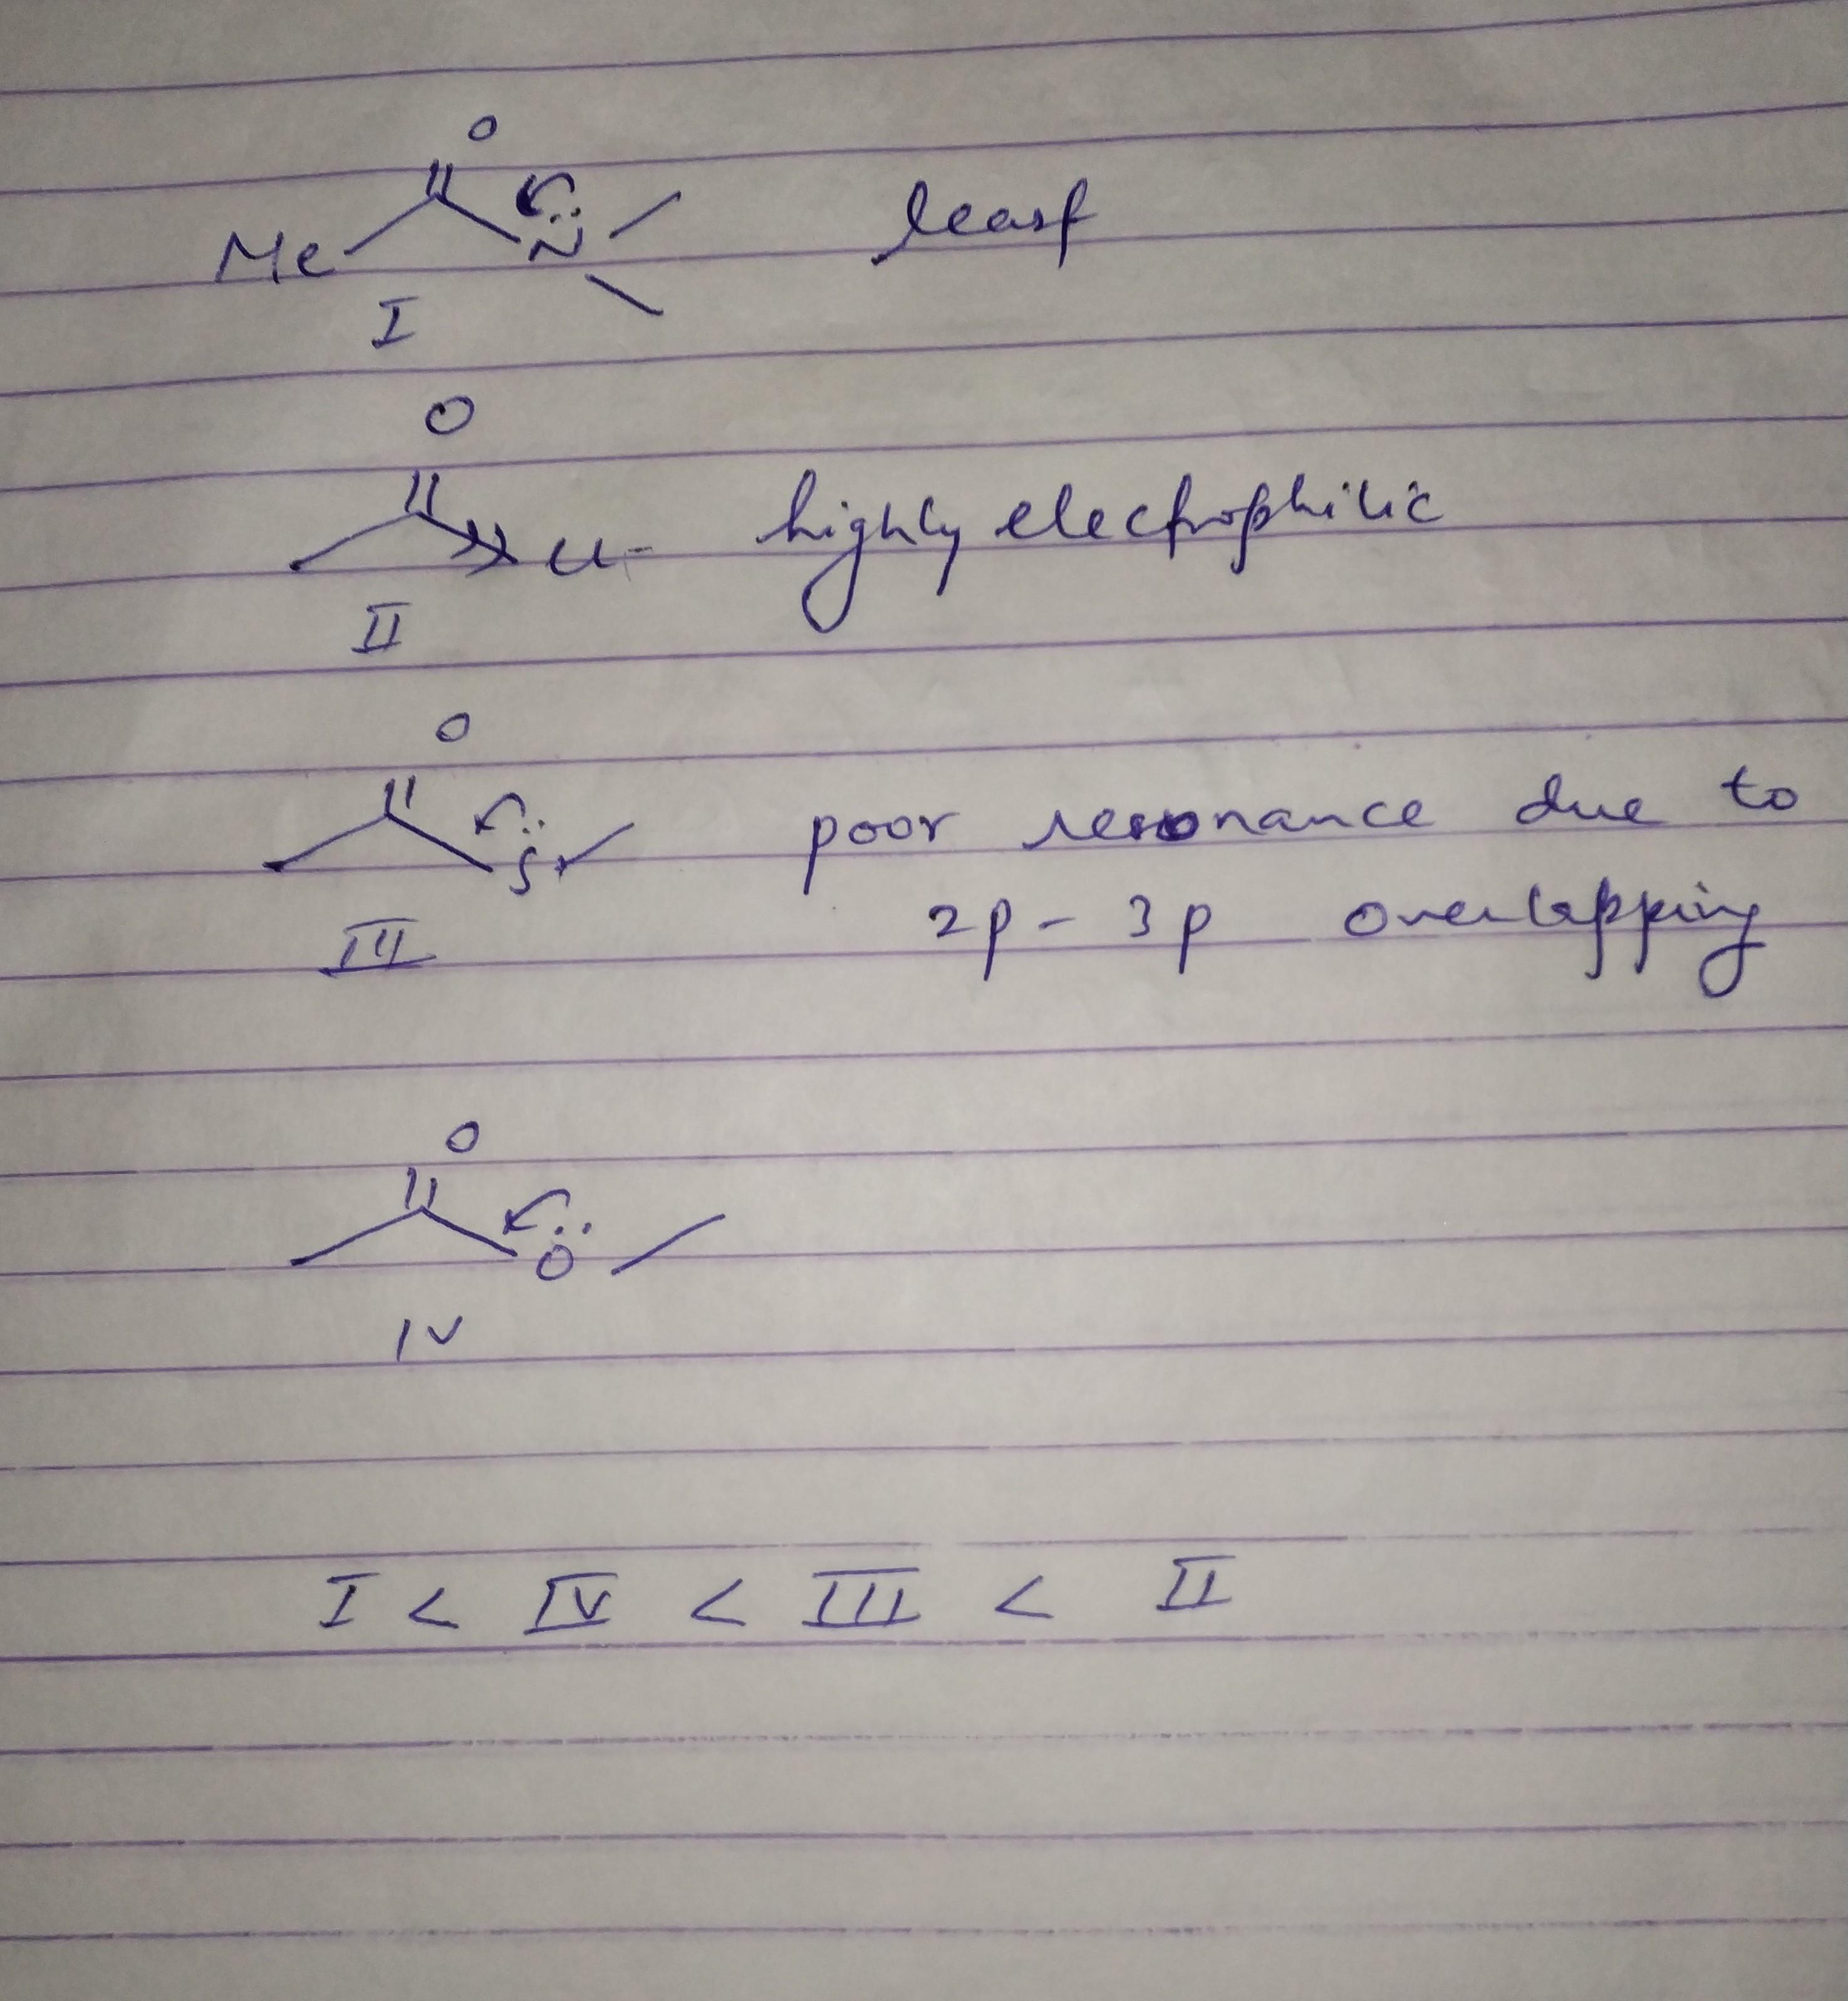 O
Me N least
I
O
Cl highly electrophilic
II
O
S poor resonance due to
2p - 3p overlapping
III
O
O
IV
I < IV < III < II